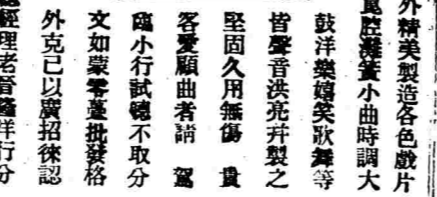 外精美製造各色戲片
崑腔灘簧小曲時調大
鼓洋樂嬉笑歌舞等
皆聲音洪亮幷製之
堅固久用無傷 貴
客愛顧曲者請 駕
臨小行試聽不取分
文如蒙零躉批發格
外克己以廣招徠認
經理老晉隆洋行分